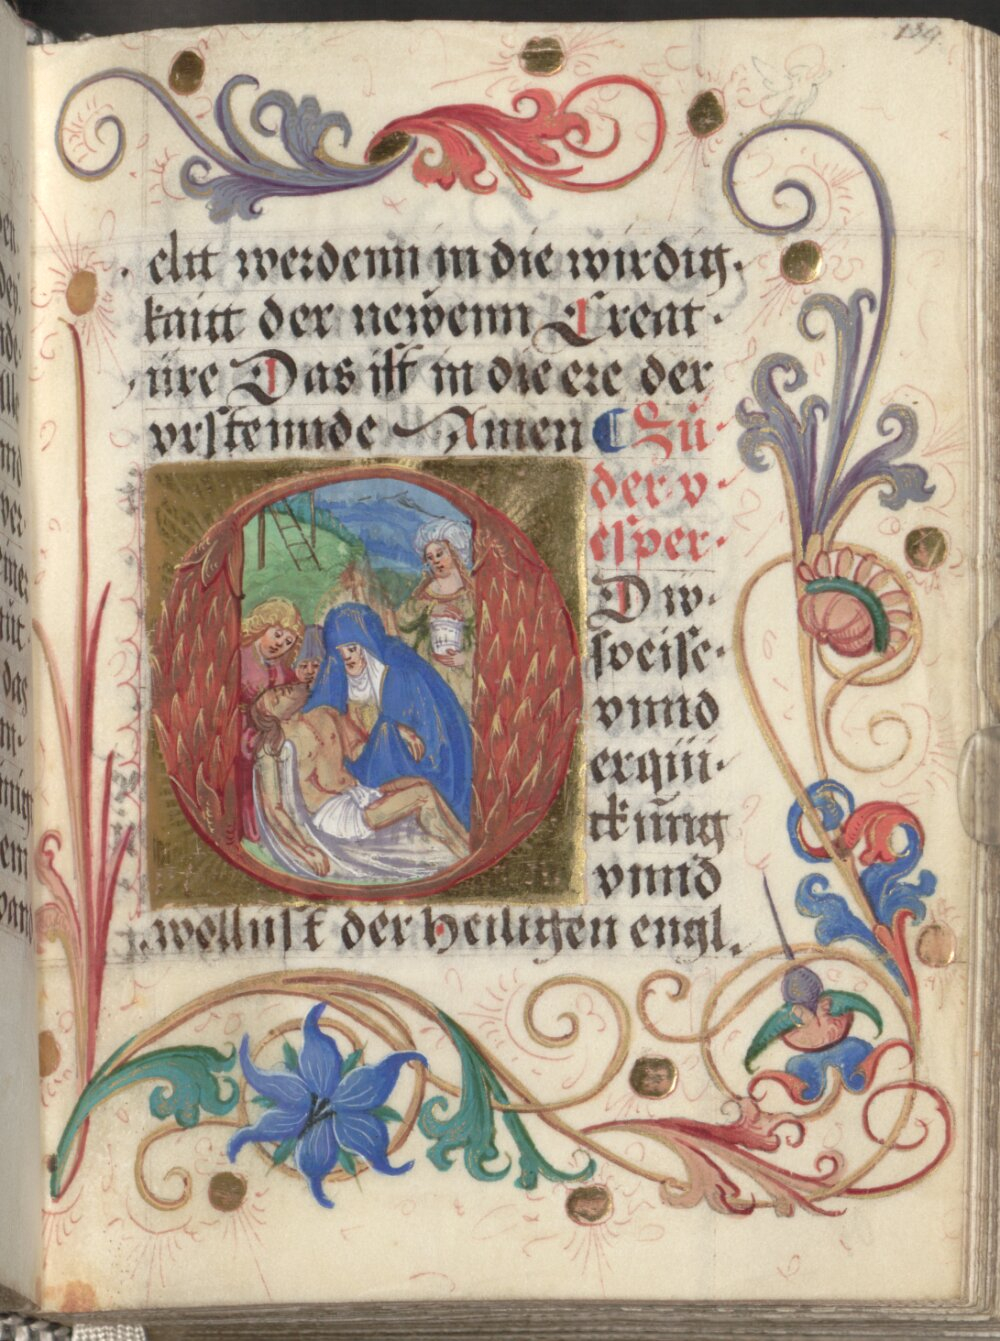 139.
elit werdenn jn die wirdig.
kaitt der neẅenn Creat.
ure Das ist in die ere der
vrstennde Amen Zů
der v
esper.
O Dw
speise.
vnnd
erqui.
ckŭng
vnnd
wollust der heiligen engl.